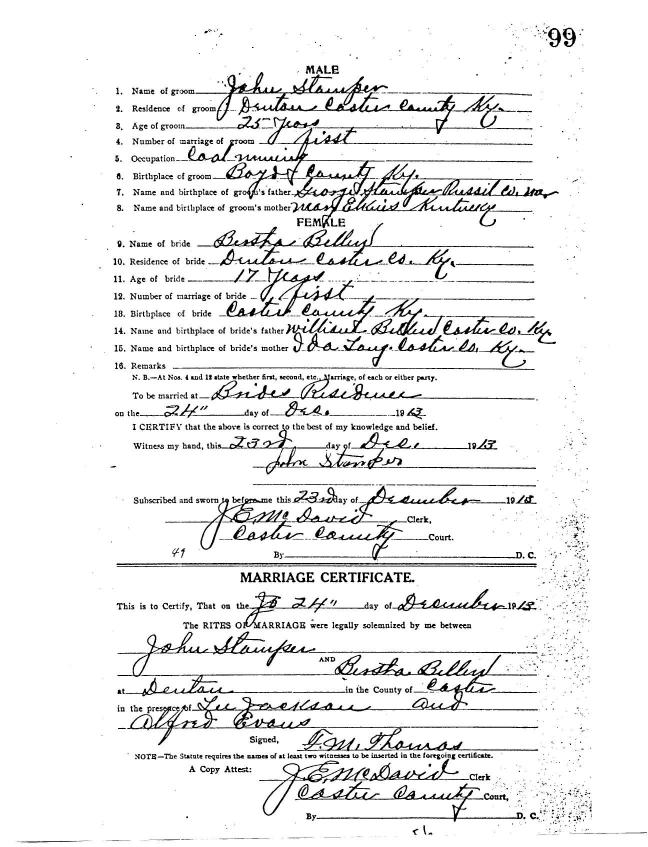 99
MALE
1. Name of groom John Stamper
2. Residence of groom Denton Carter County Ky.
3. Age of groom 25 Years
4. Number of marriage of groom first
5. Occupation Coal mining
6. Birthplace of groom Boyd County Ky.
7. Name and birthplace of groom's father George Stamper Russil Co.
8. Name and birthplace of groom's mother Mary Elkins Kentucky
FEMALE
9. Name of bride Bertha
10. Residence of bride Denton Carter Co. Ky.
11. Age of bride 17 Years
12. Number of marriage of bride first
13. Birthplace of bride Carter County Ky.
14. Name and birthplace of bride's father William Carter Co. Ky
15. Name and birthplace of bride's mother Ida Long. Carter Co. Ky.
16. Remarks
N. B.—At Nos. 4 and 12 state whether first, second, etc., Marriage, of each or either party.
To be married at Brides Residence
on the 24" day of Dec. 1913
I CERTIFY that the above is correct to the best of my knowledge and belief.
Witness my hand, this 23rd day of Dec. 1913
John Stamper
Subscribed and sworn to before me this 23rd day of December 1913
J E McDavid Clerk,
Carter County Court.
49 By D. C.
MARRIAGE CERTIFICATE.
This is to Certify, That on the 24" day of December 1913
The RITES OF MARRIAGE were legally solemnized by me between
John Stamper
AND Bertha
at Denton in the County of Carter
in the presence of Jackson and
Alfred Evans
Signed, F. M. Thomas
NOTE—The Statute requires the names of at least two witnesses to be inserted in the foregoing certificate.
A Copy Attest: J E McDavid Clerk
Carter County Court,
By D. C.